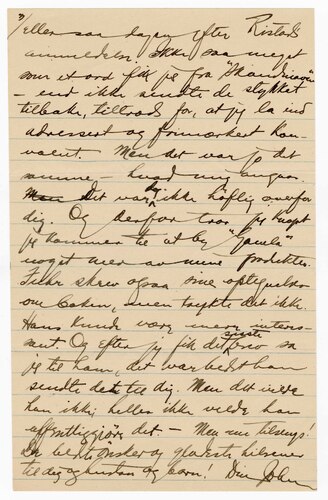 7/
eller saa dagny efter Ristads
anmeldelse. Ikke saa meget
som et ord fik jeg fra "Skandinaven"
- end ikke sendte de stykket
tilbake, tiltrods for, at jeg la ind
adressert og frimerket kon-
volut. Men det var jo det
samme - hvad mig angaar.
Men Det var ikke høflig overfor
dig. Og derfor tror jeg knapt
jeg kommer til at by "Gamla"
noget mer av mine produkter.
skrev ogsaa sine
om boken, men trykte det ikke.
Hans kunde være mere interes-
sant. Og efter jeg fik det siste brev sa
jeg til ham, det var bedst han
sendte det til dig. Men det vilde
han ikke, heller ikke vilde han
offentliggjøre det. - Men nu tilsengs!
De bedste ønsker og gladeste hilsener
til dig og hustru og barn! Din John